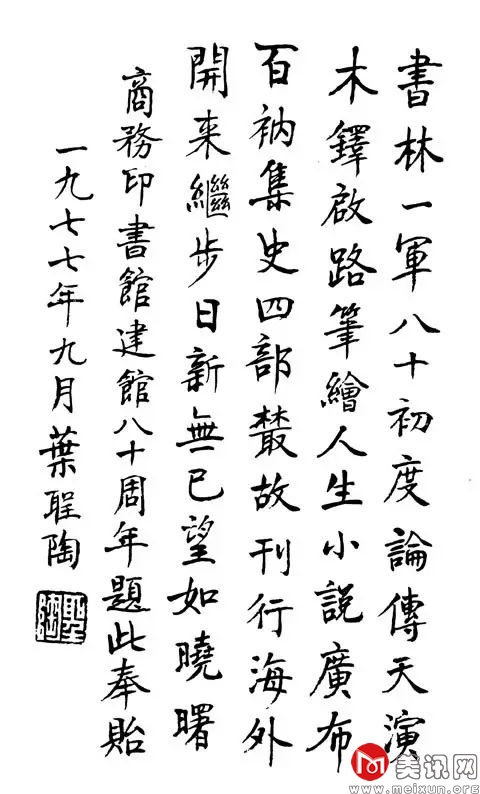 書林一軍八十初度論傳天演
木鐸啟路筆繪人生小説廣布
百衲集史四部叢故刊行海外
開来繼步日新無已望如曉曙
商務印書館建館八十周年題此奉貽
一九七七年九月葉聖陶
聖陶
美讯网
www.meixun.org